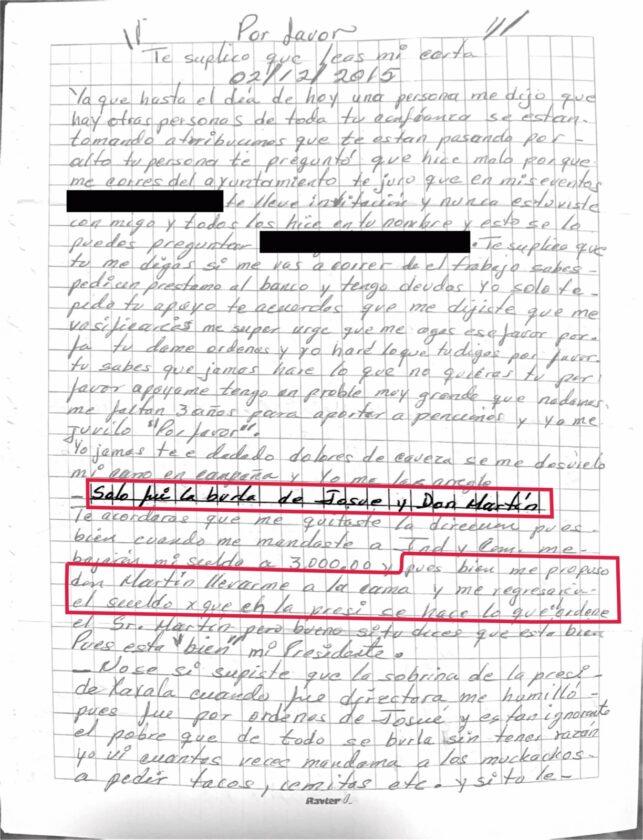 Por favor
Te suplico que leas mi carta
02/12/2015
Ya que hasta el día de hoy una persona me dijo que
hay otras personas de toda tu confianza se estan
tomando atribuciones que te estan pasando por -
alto tu persona te preguntó que hice malo porque
me corres del ayuntamiento te juro que en mis eventos
te lleve invitación y nunca estoviste
con migo y todos los hice en tu nombre y esto se lo
puedes preguntar . Te suplico que
tu me digas si me vas a correr de el trabajo sabes -
pedi un prestamo al banco y tengo deudas Yo solo te -
pido tu apoyo te acuerdas que me dijiste que me
me super urge que me agas ese favor por-
fa tu dame ordenes y yo haré lo que tu digas por favor
tu sabes que jamas hare lo que no quieras tu por
favor apoyame tengo un problem muy grande que nadamas
me faltan 3 años para aportar a penciones y yo me
juvilo "Por favor".
Yo jamas te e dadado dolores de caveza se me desvielo
mi en campaña y Yo me las arregle
- Solo fui la burla de Josue y Don Martín
Te acordaras que me quitaste la direccion pues
bien cuando me mandaste a Ind y Com. me-
bajarón mi sueldo a 3,000.00 y pues bien me propuso
don Martin llevarme a la cama y me regresaria
el sueldo x que en la presi se hace lo que ordene
el Sr. Martín pero bueno si tu dices que esta bien
Pues esta "bien" mi Presidente.
- Nose si supiste que la sobrina de la presi-
de Xaxala cuando fue directora me humilló -
pues fue por ordenes de Josué y es tan ignorante
el pobre que de todo se burla sin tener razón
yo vi cuantas veces mandama a los muchachos
a pedir tacos, cemitas etc. y si tu le -